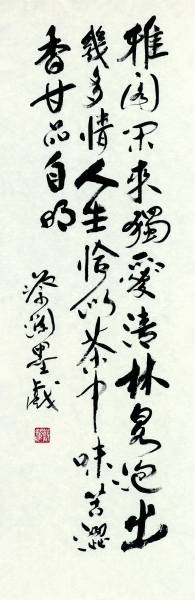 雅阁闲来獨愛清林泉泡出
幾多情人生恰似茶中味苦澀
香甘品自明
墨戲